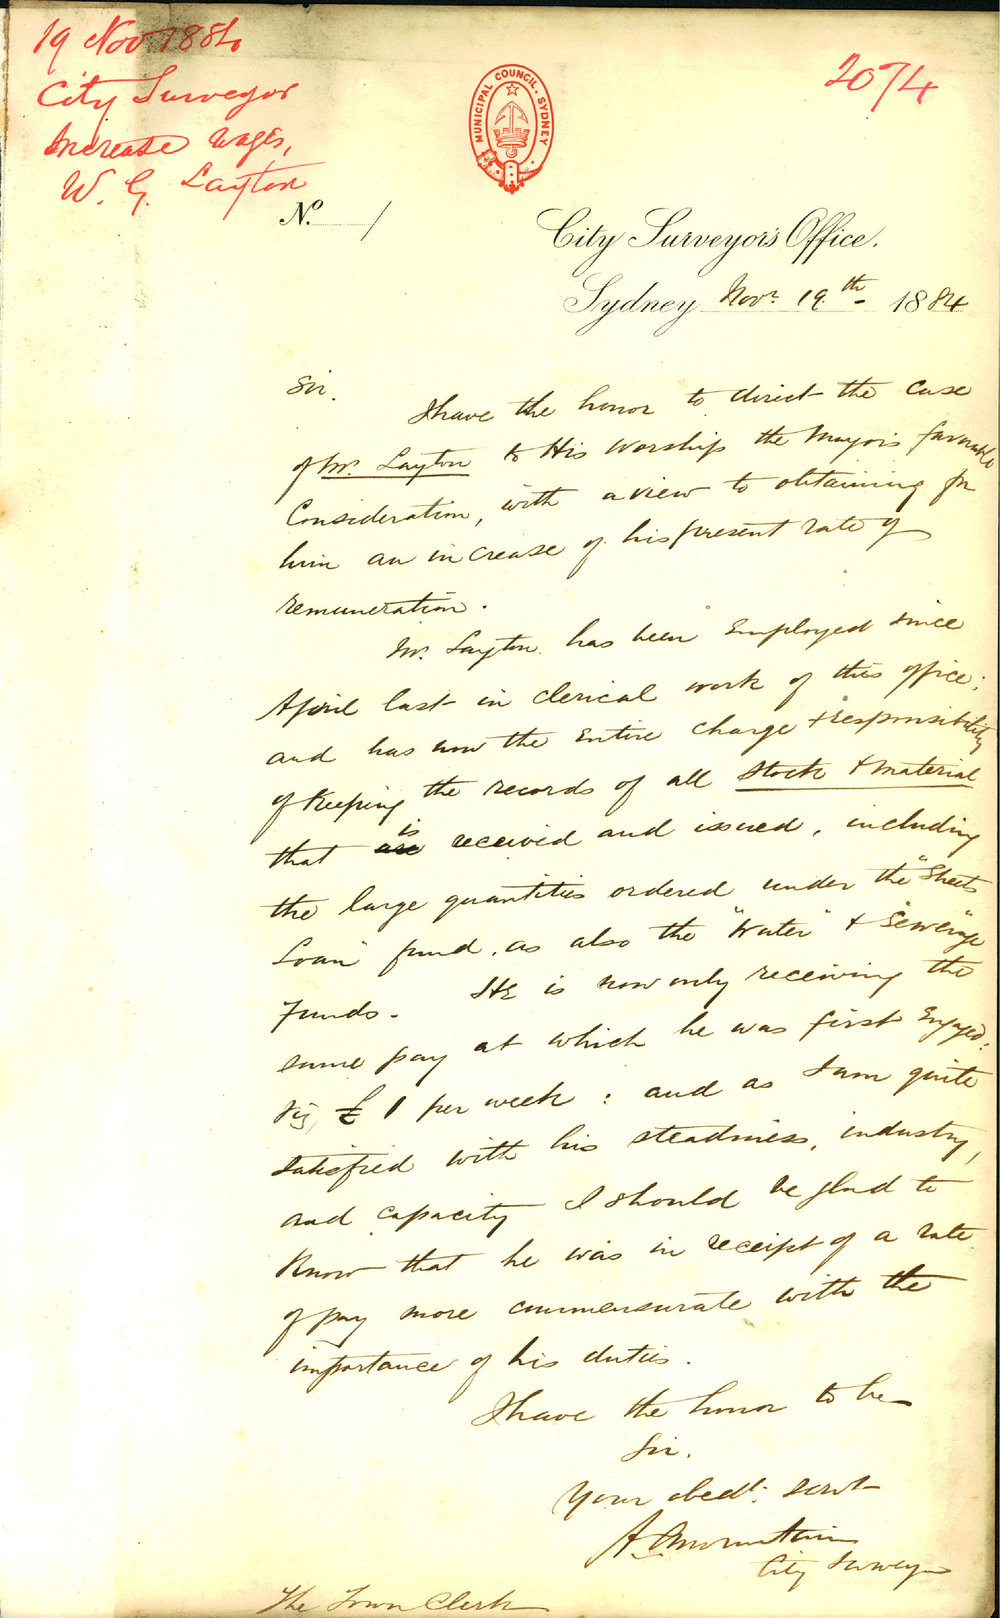 19 Nov 1884
City Surveyor
Increase wages,
W. G. Layton
2074
MUNICIPAL COUNCIL. SYDNEY
No. /
City Surveyor's Office.
Sydney Novr. 19th 1884
Sir.
I have the honor to direct the case
of Mr. Layton to His Worship the Mayor's favorable
Consideration, with a view to obtaining for
him an increase of his present rate of
remuneration.
Mr. Layton has been Employed since
April last in clerical work of this office;
and has now the Entire charge & responsibility
of Keeping the records of all Stock & Material
that are is received and issued, including
the large quantities ordered under the "Streets
Loan" fund, as also the "Water" & "Sewerage"
Funds. He is now only receiving the
same pay at which he was first Engaged:
viz, £1 per week: and as I am quite
satisfied with his steadiness, industry,
and capacity I should be glad to
Know that he was in receipt of a rate
of pay more commensurate with the
importance of his duties.
I have the honor to be
Sir.
Your obedt. servt
A. Mountain
City Surveyor
The Town Clerk